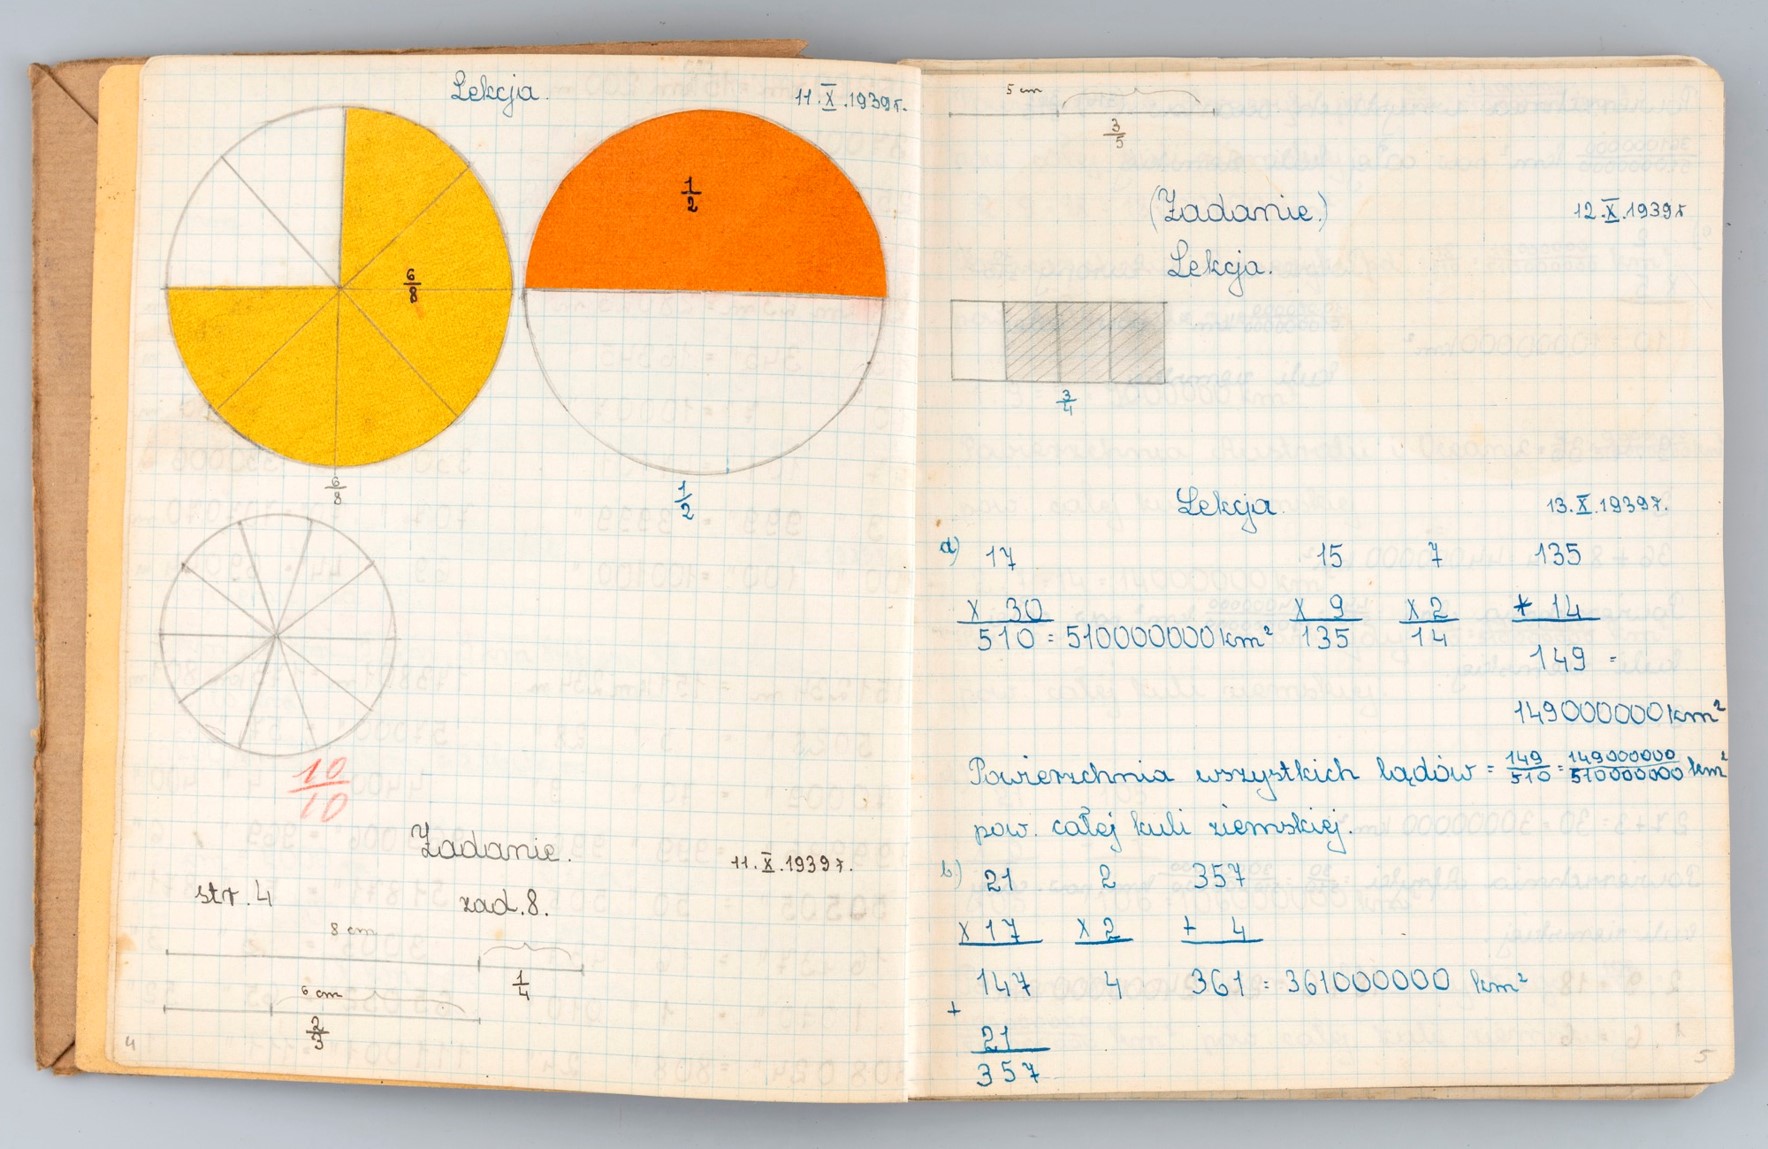 Lekcja.
11.X.1939r.
6/8
1/2
6/8
1/2
10/10
Zadanie.
11.X.1939r.
str. 4 zad. 8.
8 cm
1/4
6 cm
2/3
4
5 cm
3/5
(Zadanie.)
12.X.1939r
Lekcja.
3/4
Lekcja.
13.X.1939r.
a) 17 15 7 135
x 30 x 9 x 2 + 14
510 = 510000000 km² 135 14 149 =
149000000 km²
Powierzchnia wszystkich lądów = 149/510 = 149000000/510000000 km²
pow. całej kuli ziemskiej.
b) 21 2 357
x 17 x 2 + 4
147 4 361 = 361000000 km²
+
21
357
5